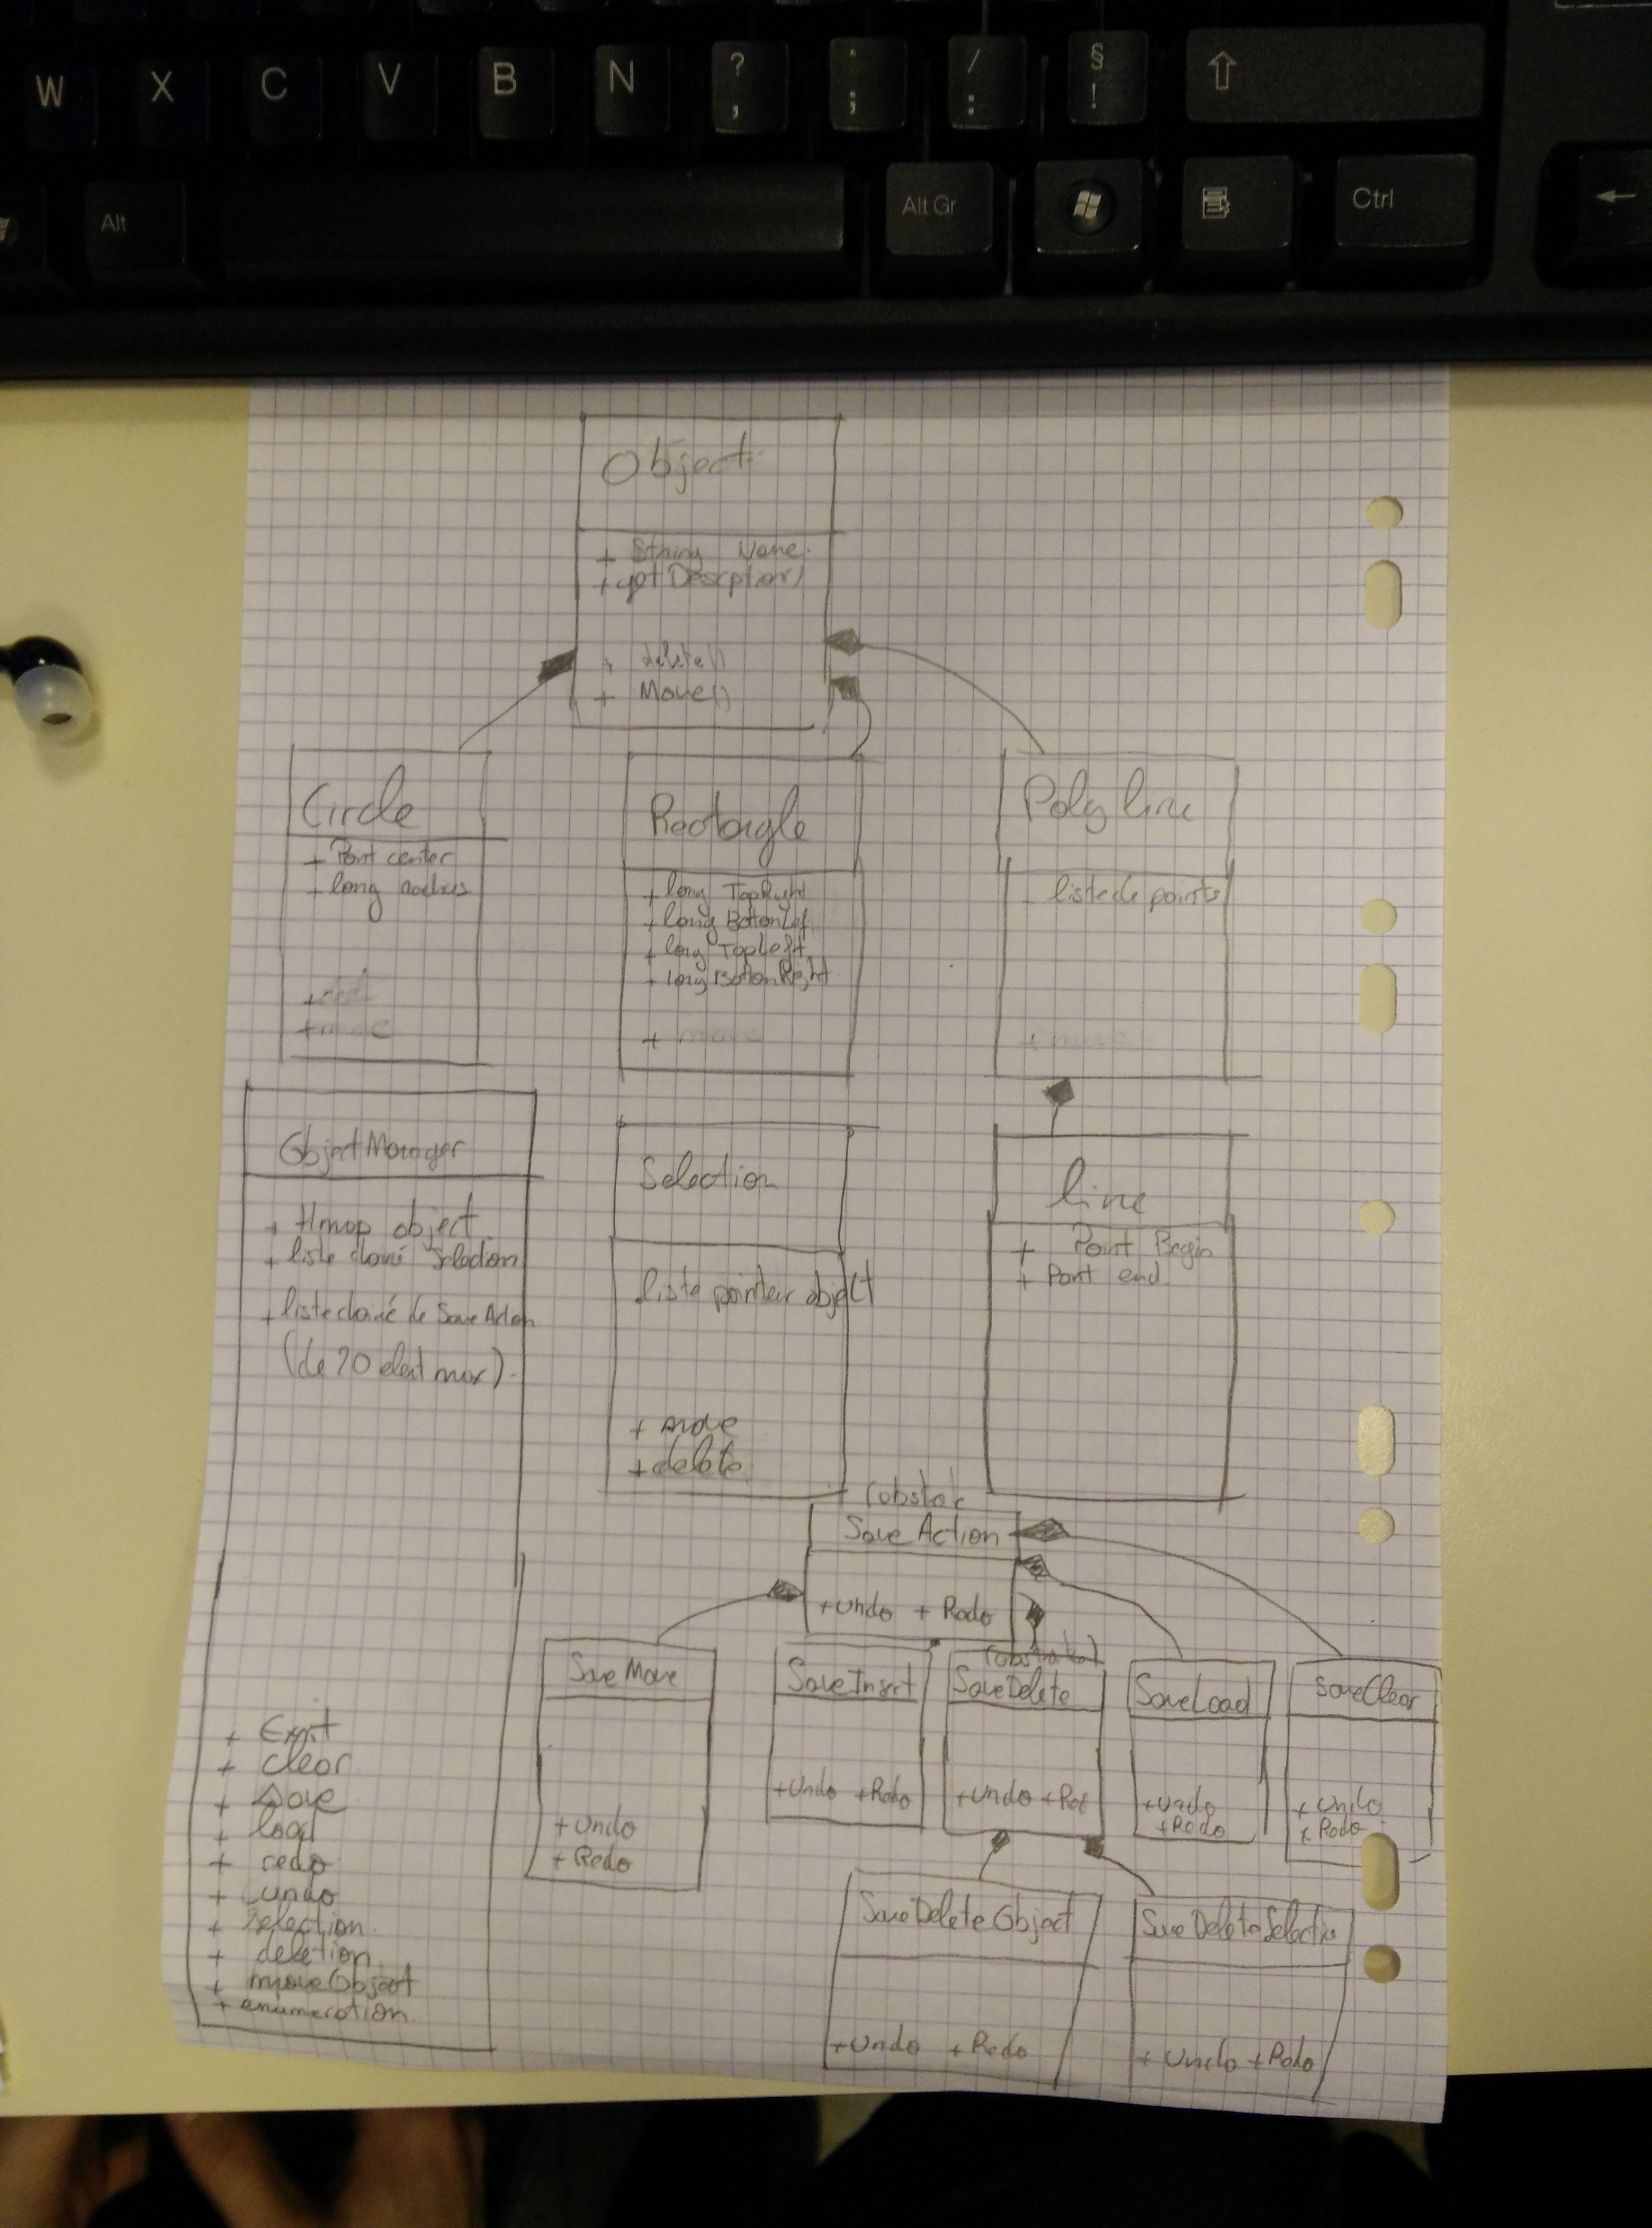 W X C V B N ? , . ; / : § !
Alt Alt Gr Ctrl
Object
+ String Name
+ getDescption()
+ delete()
+ Move()
Circle
+ Point center
+ long radius
+ move
Rectangle
+ long TopRight
+ long BottonLef
+ long TopLeft
+ long BottonRight
+ move
Poly line
liste de points
+ move
ObjectManager
+ Hmap object
+ liste chainé Selection
+ liste chainé de Save Action
(de 20 elent max).
+ Clear
+ Save
+ load
+ redo
+ undo
+ selection
+ deletion
+ moveObject
+ enumeration
Selection
liste pointeur object
+ move
+ delete
line
+ Point Begin
+ Point end
(abstra c
Save Action
+Undo + Redo
Save Move
+ Undo
+ Redo
SaveInsert
+Undo +Redo
SaveDelete
+Undo +Red
SaveLoad
+Undo
+Redo
SaveClear
+ Undo
+ Redo
SaveDeleteObject
+Undo + Redo
SaveDeleteSelectio
+ Undo + Redo